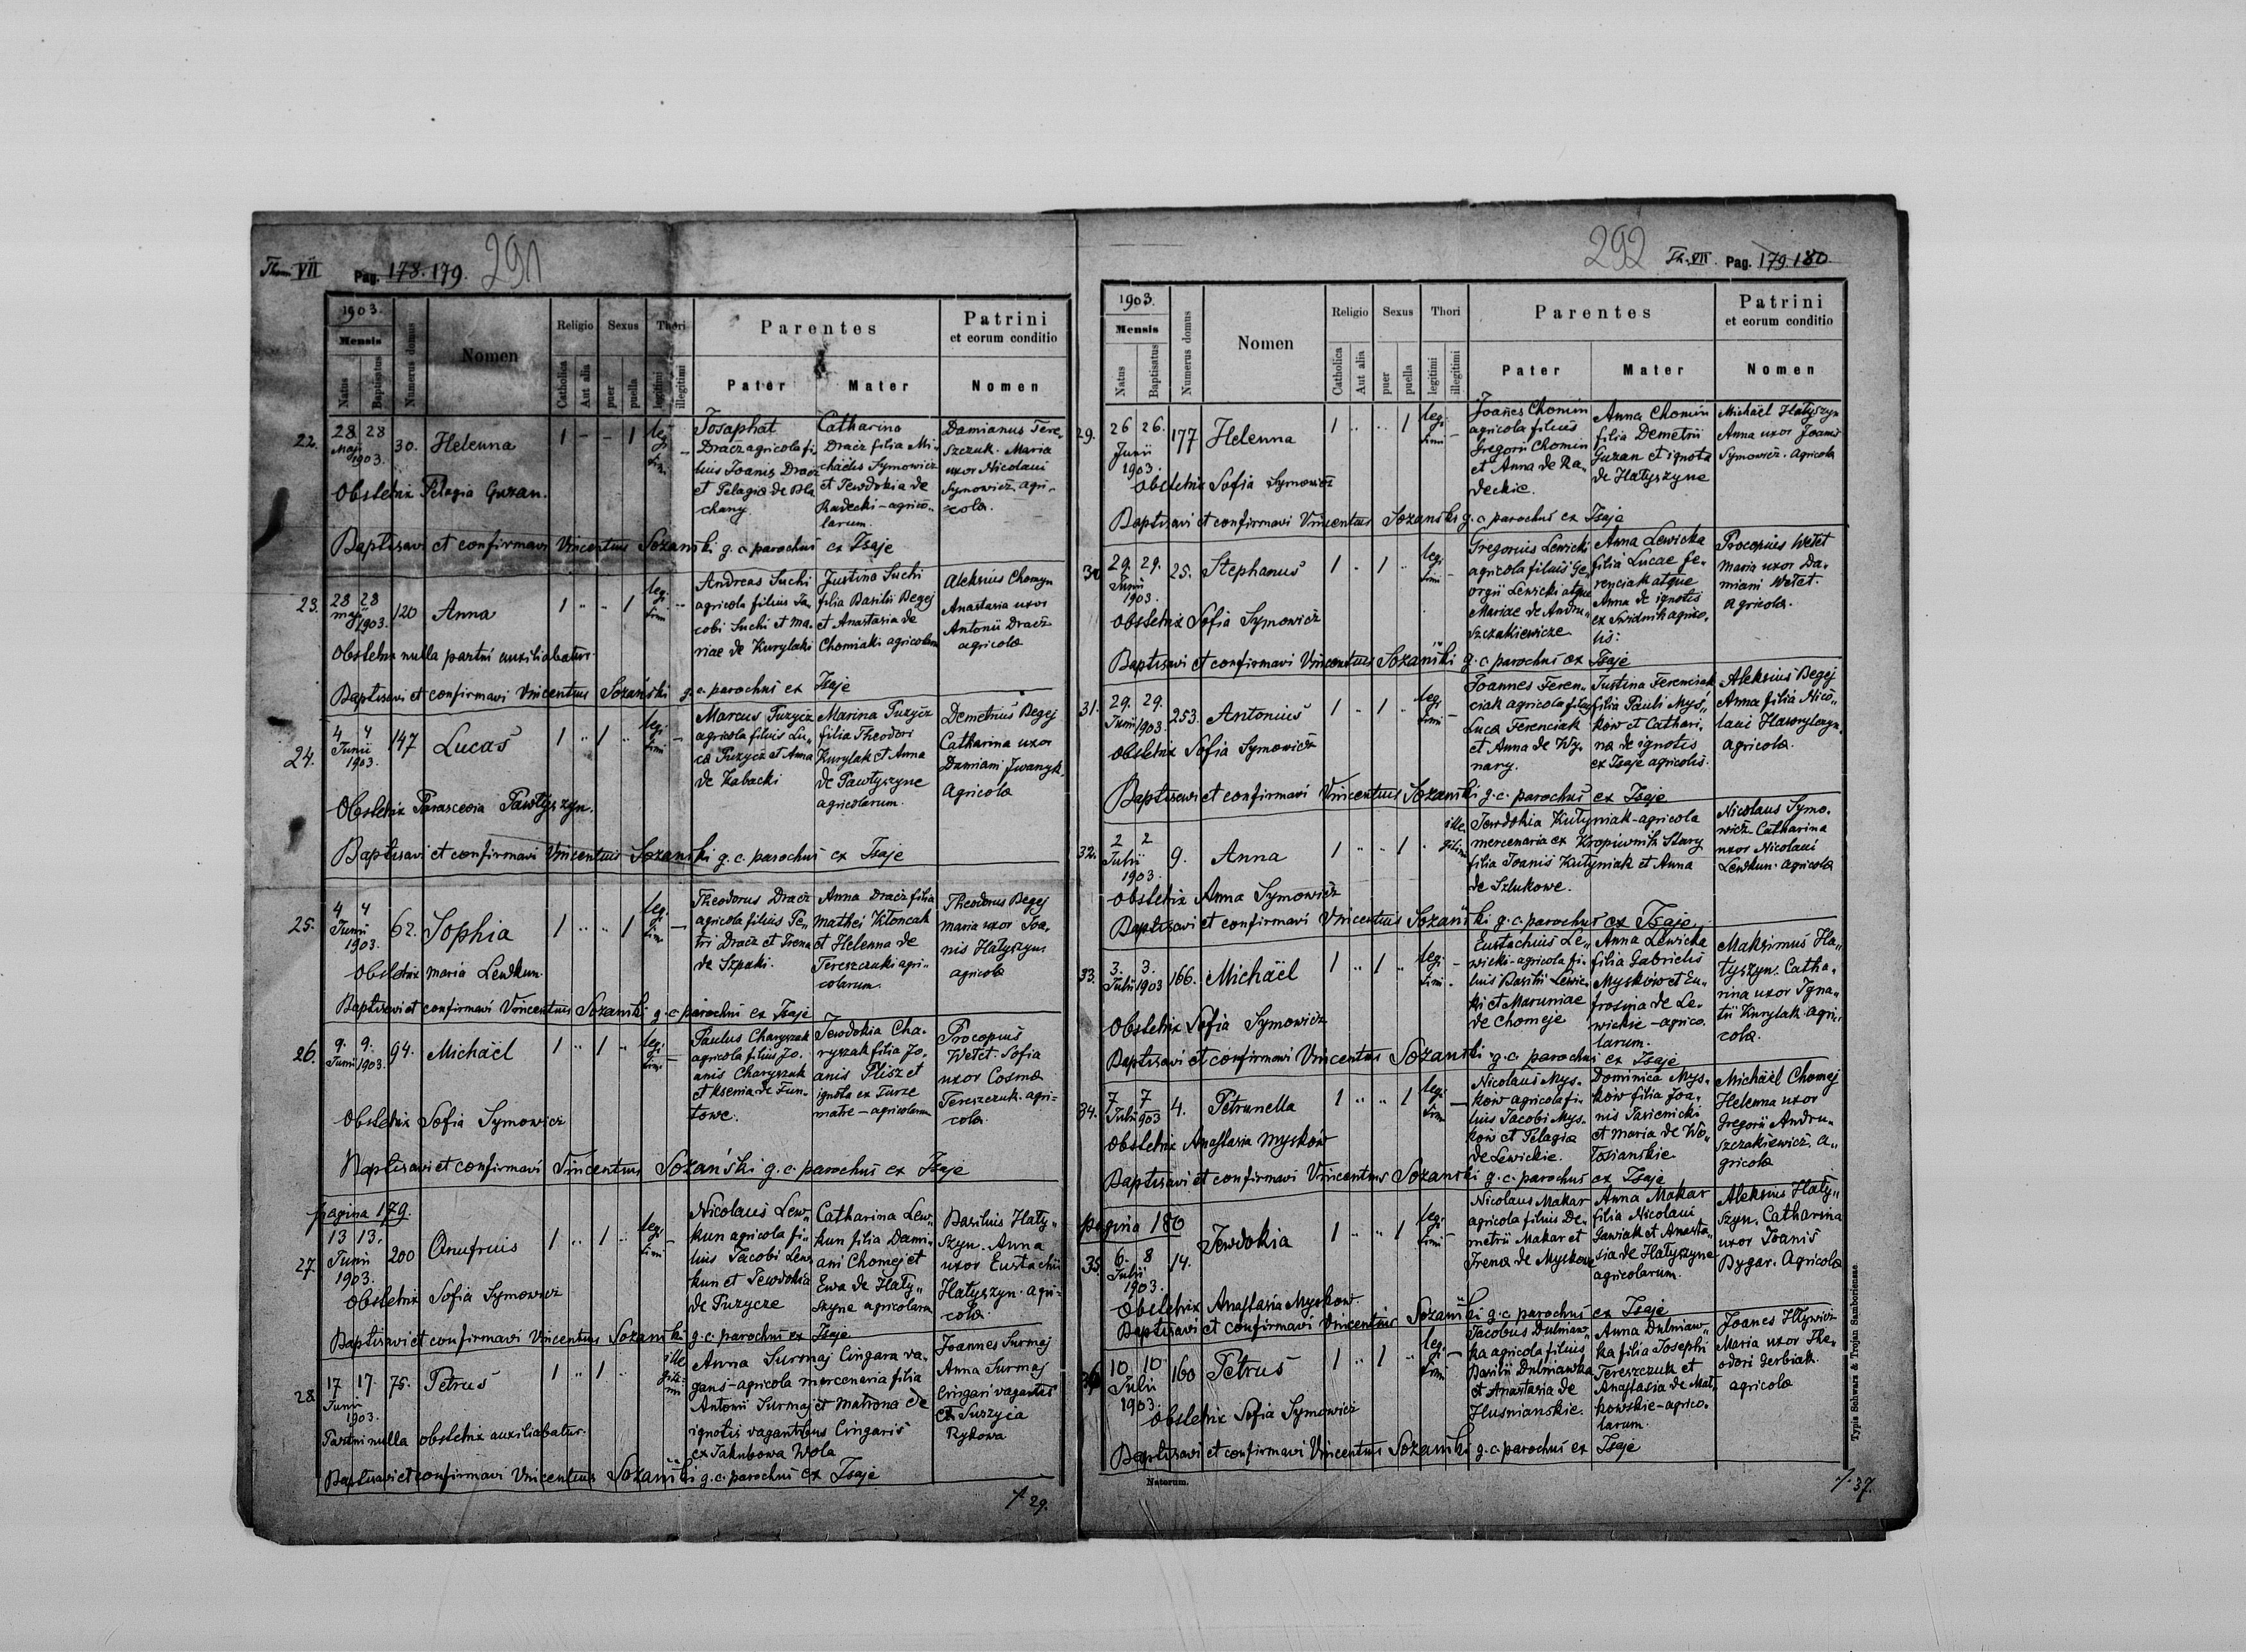 Thom VII Pag. 178. 179. 291
1903.
Mensis
Natus Baptisatus Numerus domus Nomen Religio Sexus Thori Parentes Patrini
et eorum conditio
Catholica Aut alia puer puella legitimi illegitimi Pater Mater Nomen
22. 28 28 30. Helenna 1 - - 1 legi
Maji 1903. timi -
Josaphat
Dracz agricola fi
lius Joanis Dracz
et Pelagia de Bla
chany.
Catharina
Dracz filia Mi
chäelis Symowicz
et Jewdokia de
Radecki - agrico
larum.
Damianus Tere
szczuk. Maria
uxor Nicolaui
Symowicz agri
cola.
Obstetrix Pelagia Guzan.
Baptisavi et confirmavi Vincentius Sozański g. c. parochus ex Isaje
23. 28 28 120 Anna 1 " " 1 legi
maji 1903. timi -
Andreas Suchi
agricola filius Ja
cobi Suchi et Ma
riae de Kurylaki
Justina Suchi
filia Basilii Begej
et Anastasia de
Chomiaki agricolarum
Aleksius Chomyn
Anastasia uxor
Antonii Dracz
agricola
Obstetrix nulla partui auxiliabatur
Baptisavi et confirmavi Vincentius Sozański g. c. parochus ex Isaje
24. 4 4 147 Lucas 1 " 1 " legi
Junii 1903. timi -
Marcus Puzycz
agricola filius Lu
ca Puzycz et Anna
de Zabacki
Marina Puzycz
filia Theodori
Kurylak et Anna
de Pawłyszyne
agricolarum.
Demetrius Begej
Catharina uxor
Damiani Iwanyk
Agricola
Obstetrix Parascevia Pawłyszyn.
Baptisavi et confirmavi Vincentius Sozański g. c. parochus ex Isaje
25. 4 4 62. Sophia 1 " " 1 legi
Junii 1903. timi -
Theodorus Dracz
agricola filius Pe
tri Dracz et Irena
de Szpaki.
Anna Dracz filia
Mathei Kłoncak
et Helenna de
Tereszczuki agri
colarum.
Theodorus Begej
maria uxor Joa
nis Hałyszyn
agricola
Obstetrix maria Lewkun
Baptisavi et confirmavi Vincentius Sozański g. c. parochus ex Isaje
26. 9. 9. 94. Michäel 1 " 1 " legi
Junii 1903. timi -
Paulus Charyszak
agricola filius Jo
anis Charyszak
et Ksenia de Fun
towe.
Jewdokia Cha
ryszak filia Jo
anis Plisz et
ignota ex Turze
matre - agricolarum
Procopius
Wetet. Sofia
uxor Cosma
Tereszczuk. agri
cola.
Obstetrix Sofia Symowicz
Baptisavi et confirmavi Vincentius Sozański g. c. parochus ex Isaje
pagina 179.
27. 13 13. 200 Onufrius 1 " 1 " legi
Junii 1903. timi -
Nicolaus Lew
kun agricola fi
lius Jacobi Lew
kun et Jewdokia
de Puzycze
Catharina Lew
kun filia Dami
ani Chomej et
Ewa de Hały
szyne agricolarum
Basilius Hały
szyn. Anna
uxor Eustachii
Hałyszyn. agri
cola.
Obstetrix Sofia Symowicz
Baptisavi et confirmavi Vincentius Sozański g. c. parochus ex Isaje
28. 17 17. 75. Petrus 1 " 1 " ille
Junii 1903. giti
mi
Anna Surmaj Cingara va
gans - agricola mercenaria filia
Antonii Surmaj et Matrona de
ignotis vagantibus Cingaris
ex Jakubowa Wola
Joannes Surmaj
Anna Surmaj
Cingari vagantes
ex Suszyca
Rykowa
Partui nulla obstetrix auxiliabatur.
Baptisavi et confirmavi Vincentius Sozański g. c. parochus ex Isaje
/. 29.
292 Th. VII. Pag. 179. 180
1903.
Mensis
Natus Baptisatus Numerus domus Nomen Religio Sexus Thori Parentes Patrini
et eorum conditio
Catholica Aut alia puer puella legitimi illegitimi Pater Mater Nomen
29. 26 26. 177 Helenna 1 " " 1 legi
Junii 1903. timi -
Joañes Chomin
agricola filius
Gregorii Chomin
et Anna de Ra
deckie.
Anna Chomin
filia Demetrii
Guzan et ignota
de Hałyszyne
Michäel Hałyszyn
Anna uxor Joanis
Symowicz. Agricola
Obstetrix Sofia Symowicz
Baptisavi et confirmavi Vincentius Sozański g. c. parochus ex Isaje
30 29. 29. 25. Stephanus 1 " 1 " legi
Junii 1903. timi -
Gregorius Lewicki
agricola filius Ge
orgii Lewicki atque
Mariae de Andru
szczakiewicze
Anna Lewicka
filia Lucae Fe
renciak atque
Anna de ignotis
ex Swidnik agrico
lis.
Procopius Wetet
Maria uxor Da
miani Wetet.
Agricola.
Obstetrix Sofia Symowicz
Baptisavi et confirmavi Vincentius Sozański g. c. parochus ex Isaje
31. 29. 29. 253. Antonius 1 " 1 " legi
Junii 1903. timi -
Joannes Feren
ciak agricola filius
Luca Ferenciak
et Anna de Wy
nary.
Justina Ferenciak
filia Pauli Myś
ków et Cathari
na de ignotis
ex Isaje agricolis.
Aleksius Begej
Anna filia Nico
laui Hawrylczyn
agricola.
Obstetrix Sofia Symowicz
Baptisavi et confirmavi Vincentius Sozański g. c. parochus ex Isaje
32. 2 2 9. Anna 1 " " 1 ille
Julii 1903. gitimi
Jewdokia Kutyniak - agricola
mercenaria ex Kropiwnik Stary
filia Joanis Kutyniak et Anna
de Szlukowe.
Nicolaus Symo
wicz Catharina
uxor Nicolaui
Lewkun. agricola
Obstetrix Anna Symowicz
Baptisavi et confirmavi Vincentius Sozański g. c. parochus ex Isaje
33. 3. 3. 166. Michäel 1 " 1 " legi
Julii 1903 timi -
Eustachius Le
wicki - agricola fi
lius Basilii Lewic
ki et Maruniae
de Chomeje
Anna Lewicka
filia Gabrielis
Mysków et Eu
frosina de Le
wickie - agrico
larum.
Maksimus Ha
łyszyn. Catha
rina uxor Igna
tii Kurylak agri
cola.
Obstetrix Sofia Symowicz
Baptisavi et confirmavi Vincentius Sozański g. c. parochus ex Isaje
34. 7 7 4. Petrunella 1 " " 1 legi
Julii 903 timi -
Nicolaus Mys
ków agricola fi
lius Jacobi Mys
ków et Pelagia
de Lewickie.
Dominica Mys
ków filia Joa
nis Jasienicki
et Maria de Wo
łosianskie
Michäel Chomej
Helenna uxor
Gregorii Andru
szczakiewicz. A
gricola
Obstetrix Anastasia Mysków
Baptisavi et confirmavi Vincentius Sozański g. c. parochus ex Isaje
pagina 180
35. 6. 8 14. Jewdokia 1 " " 1 legi
Julii 1903. timi -
Nicolaus Makar
agricola filius De
metrii Makar et
Irena de Myskowe
Anna Makar
filia Nicolaui
Gawiak et Anasta
sia de Hałyszyne
agricolarum.
Aleksius Hały
szyn. Catharina
uxor Joanis
Dygar. Agricola
Obstetrix Anastasia Mysków
Baptisavi et confirmavi Vincentius Sozański g. c. parochus ex Isaje
36 10 10. 160 Petrus 1 " 1 " legi
Julii 1903. timi -
Jacobus Dulniaw
ka agricola filius
Basilii Dulniawka
et Anastasia de
Husnianskie.
Anna Dulniaw
ka filia Josephi
Tereszczuk et
Anastasia de Mat
kowskie - agrico
larum.
Joanes Hływicz
Maria uxor The
odori Serbiak.
agricola
Obstetrix Sofia Symowicz
Baptisavi et confirmavi Vincentius Sozański g. c. parochus ex Isaje
Natorum.
Typis Schwarz & Trojan Samboriensae
/. 37.